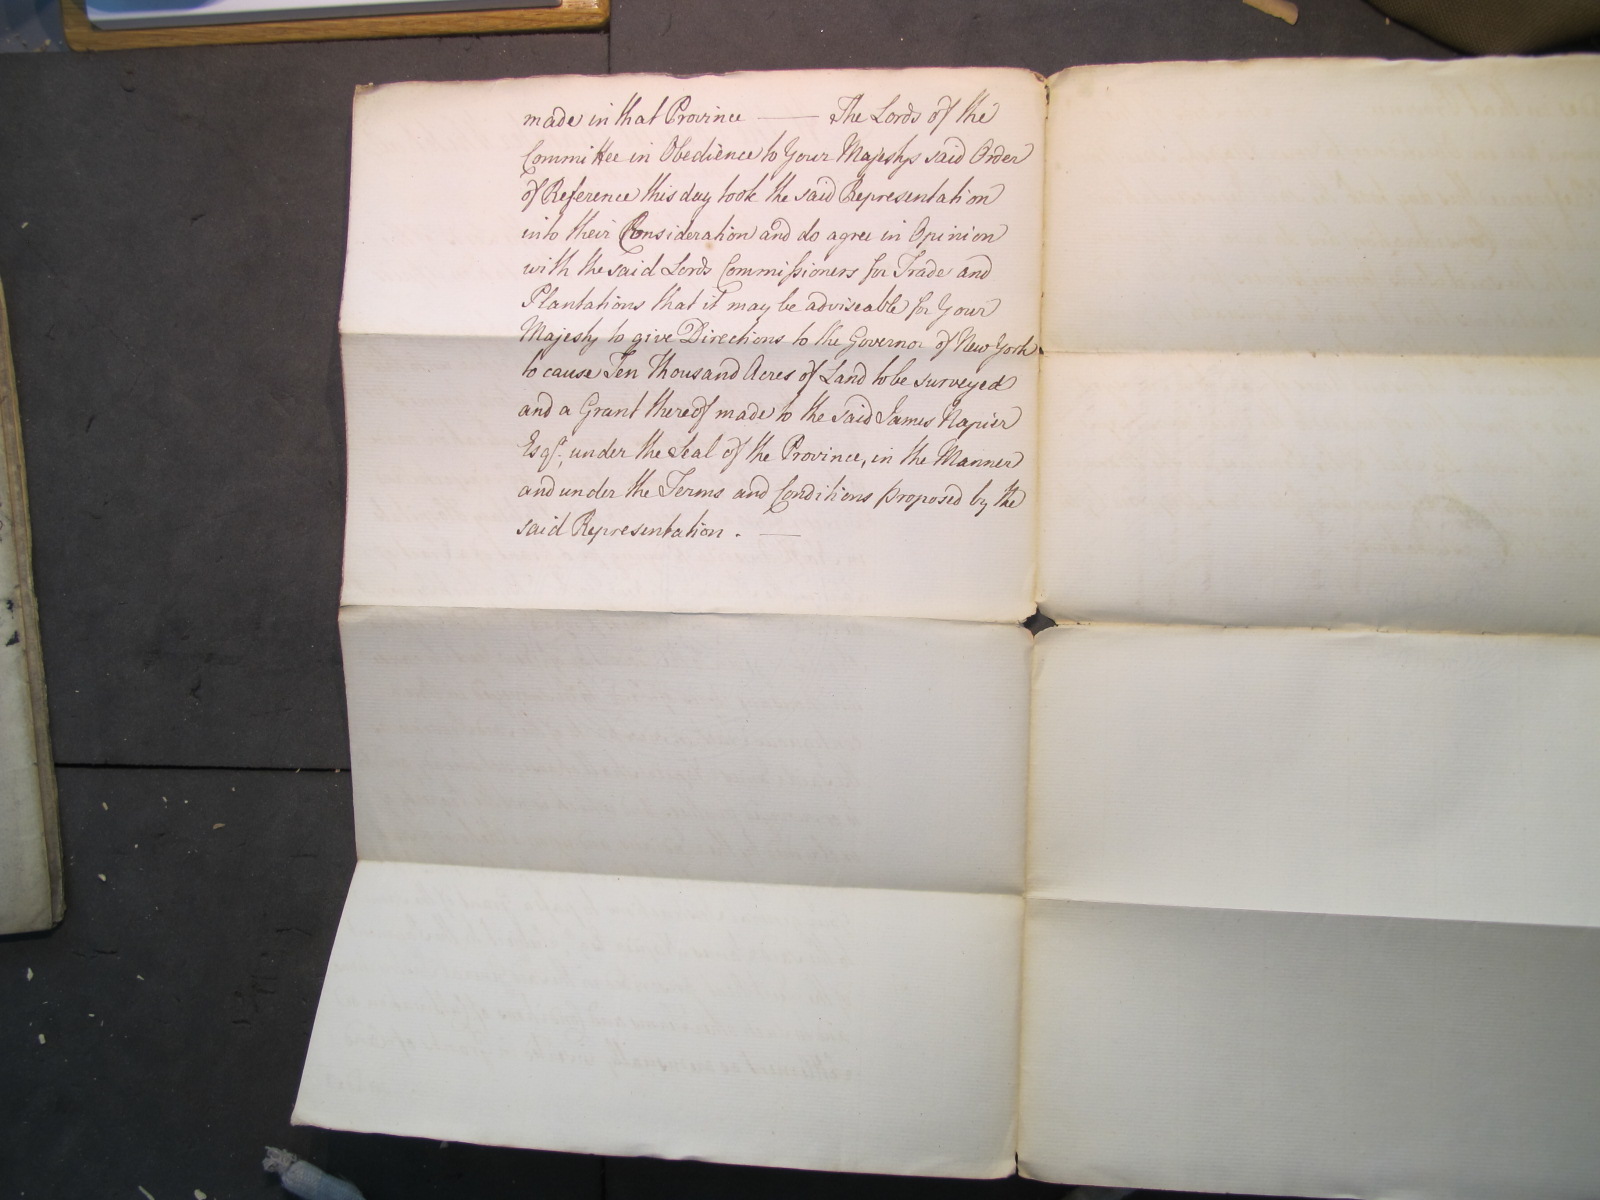 made in that Province —— The Lords of the
Committee in Obedience to Your Majestys said Order
of Reference this day took the said Representation
into their Consideration and do agree in Opinion
with the said Lords Commissioners for Trade and
Plantations that it may be adviseable for Your
Majesty to give Directions to the Governor of New York
to cause Ten Thousand Acres of Land to be surveyed
and a Grant thereof made to the said James Napier
Esqr. under the Seal of the Province, in the Manner
and under the Terms and Conditions proposed by the
said Representation. —